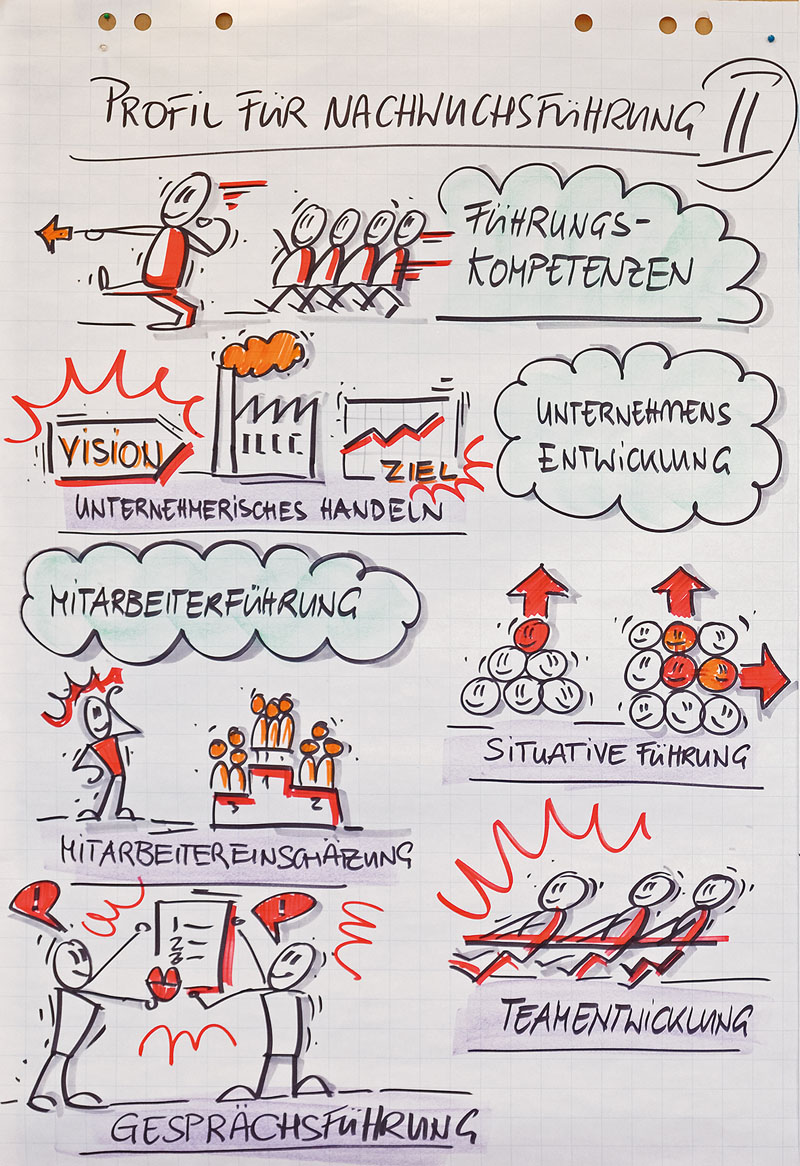 PROFIL FÜR NACHWUCHSFÜHRUNG II
FÜHRUNGS-
KOMPETENZEN
VISION
ZIEL
UNTERNEHMERISCHES HANDELN
UNTERNEHMENS
ENTWICKLUNG
MITARBEITERFÜHRUNG
SITUATIVE FÜHRUNG
3 1 2
MITARBEITEREINSCHÄTZUNG
! !
1
2
3
TEAMENTWICKLUNG
GESPRÄCHSFÜHRUNG